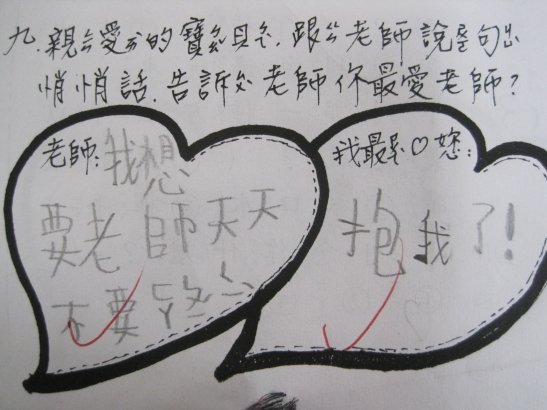 九.親ㄑㄧㄣ愛ㄞˋ的寶ㄅㄠˇ貝ㄅㄟˋ.跟ㄍㄣ老師說ㄕㄨㄛ句ㄐㄩˋ
悄悄話.告訴ㄙㄨˋ老師你最愛老師?
老師:我想
要老師天天
不要
我最ㄗㄨㄟˋ♡您:
抱我了!